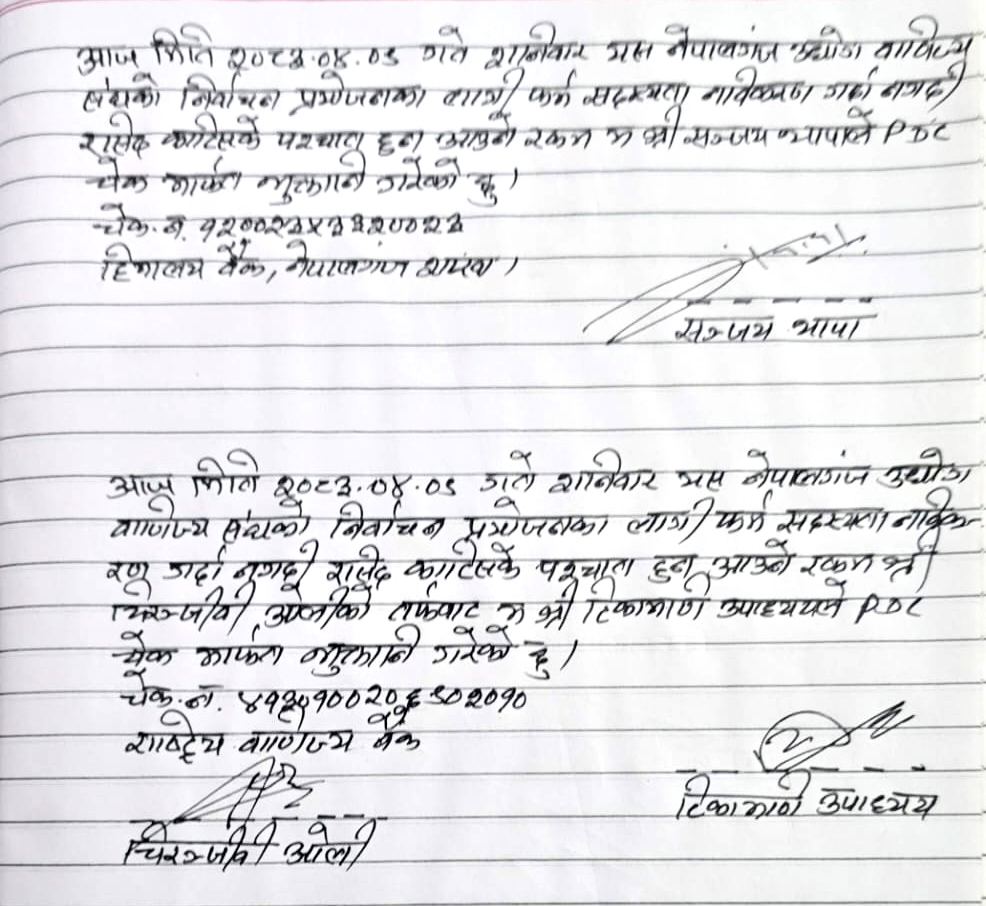 आज मिति २०८३.०४.०९ गते शनिवार यस नेपालगंज उद्योग वाणिज्य
संघको निर्वाचन प्रयोजनका लागी फर्म सदस्यता नाविकरण गर्दा नगदी
रासिद काटिसके पश्चात हुन आउने रकम म श्री सञ्जय थापाले PDC
चेक मार्फत भुक्तानी गरेको छु।
चेक.नं.
हिमालय बैंक, नेपालगंज शाखा।
सञ्जय थापा
आज मिति २०८३.०४.०९ गते शनिवार यस नेपालगंज उद्योग
वाणिज्य संघको निर्वाचन प्रयोजनका लागी फर्म सदस्यता नाविक-
रण गर्दा नगदी रासिद काटिसके पश्चात हुन आउने रकम श्री
चिरञ्जीवी ओलीको तर्फबाट म श्री टिकामणी उपाध्ययले PDC
चेक मार्फत भुक्तानि गरेको छु।
चेक.नं.
राष्ट्रिय वाणिज्य बैंक
टिकामणी उपाध्यय
चिरञ्जीवी ओली